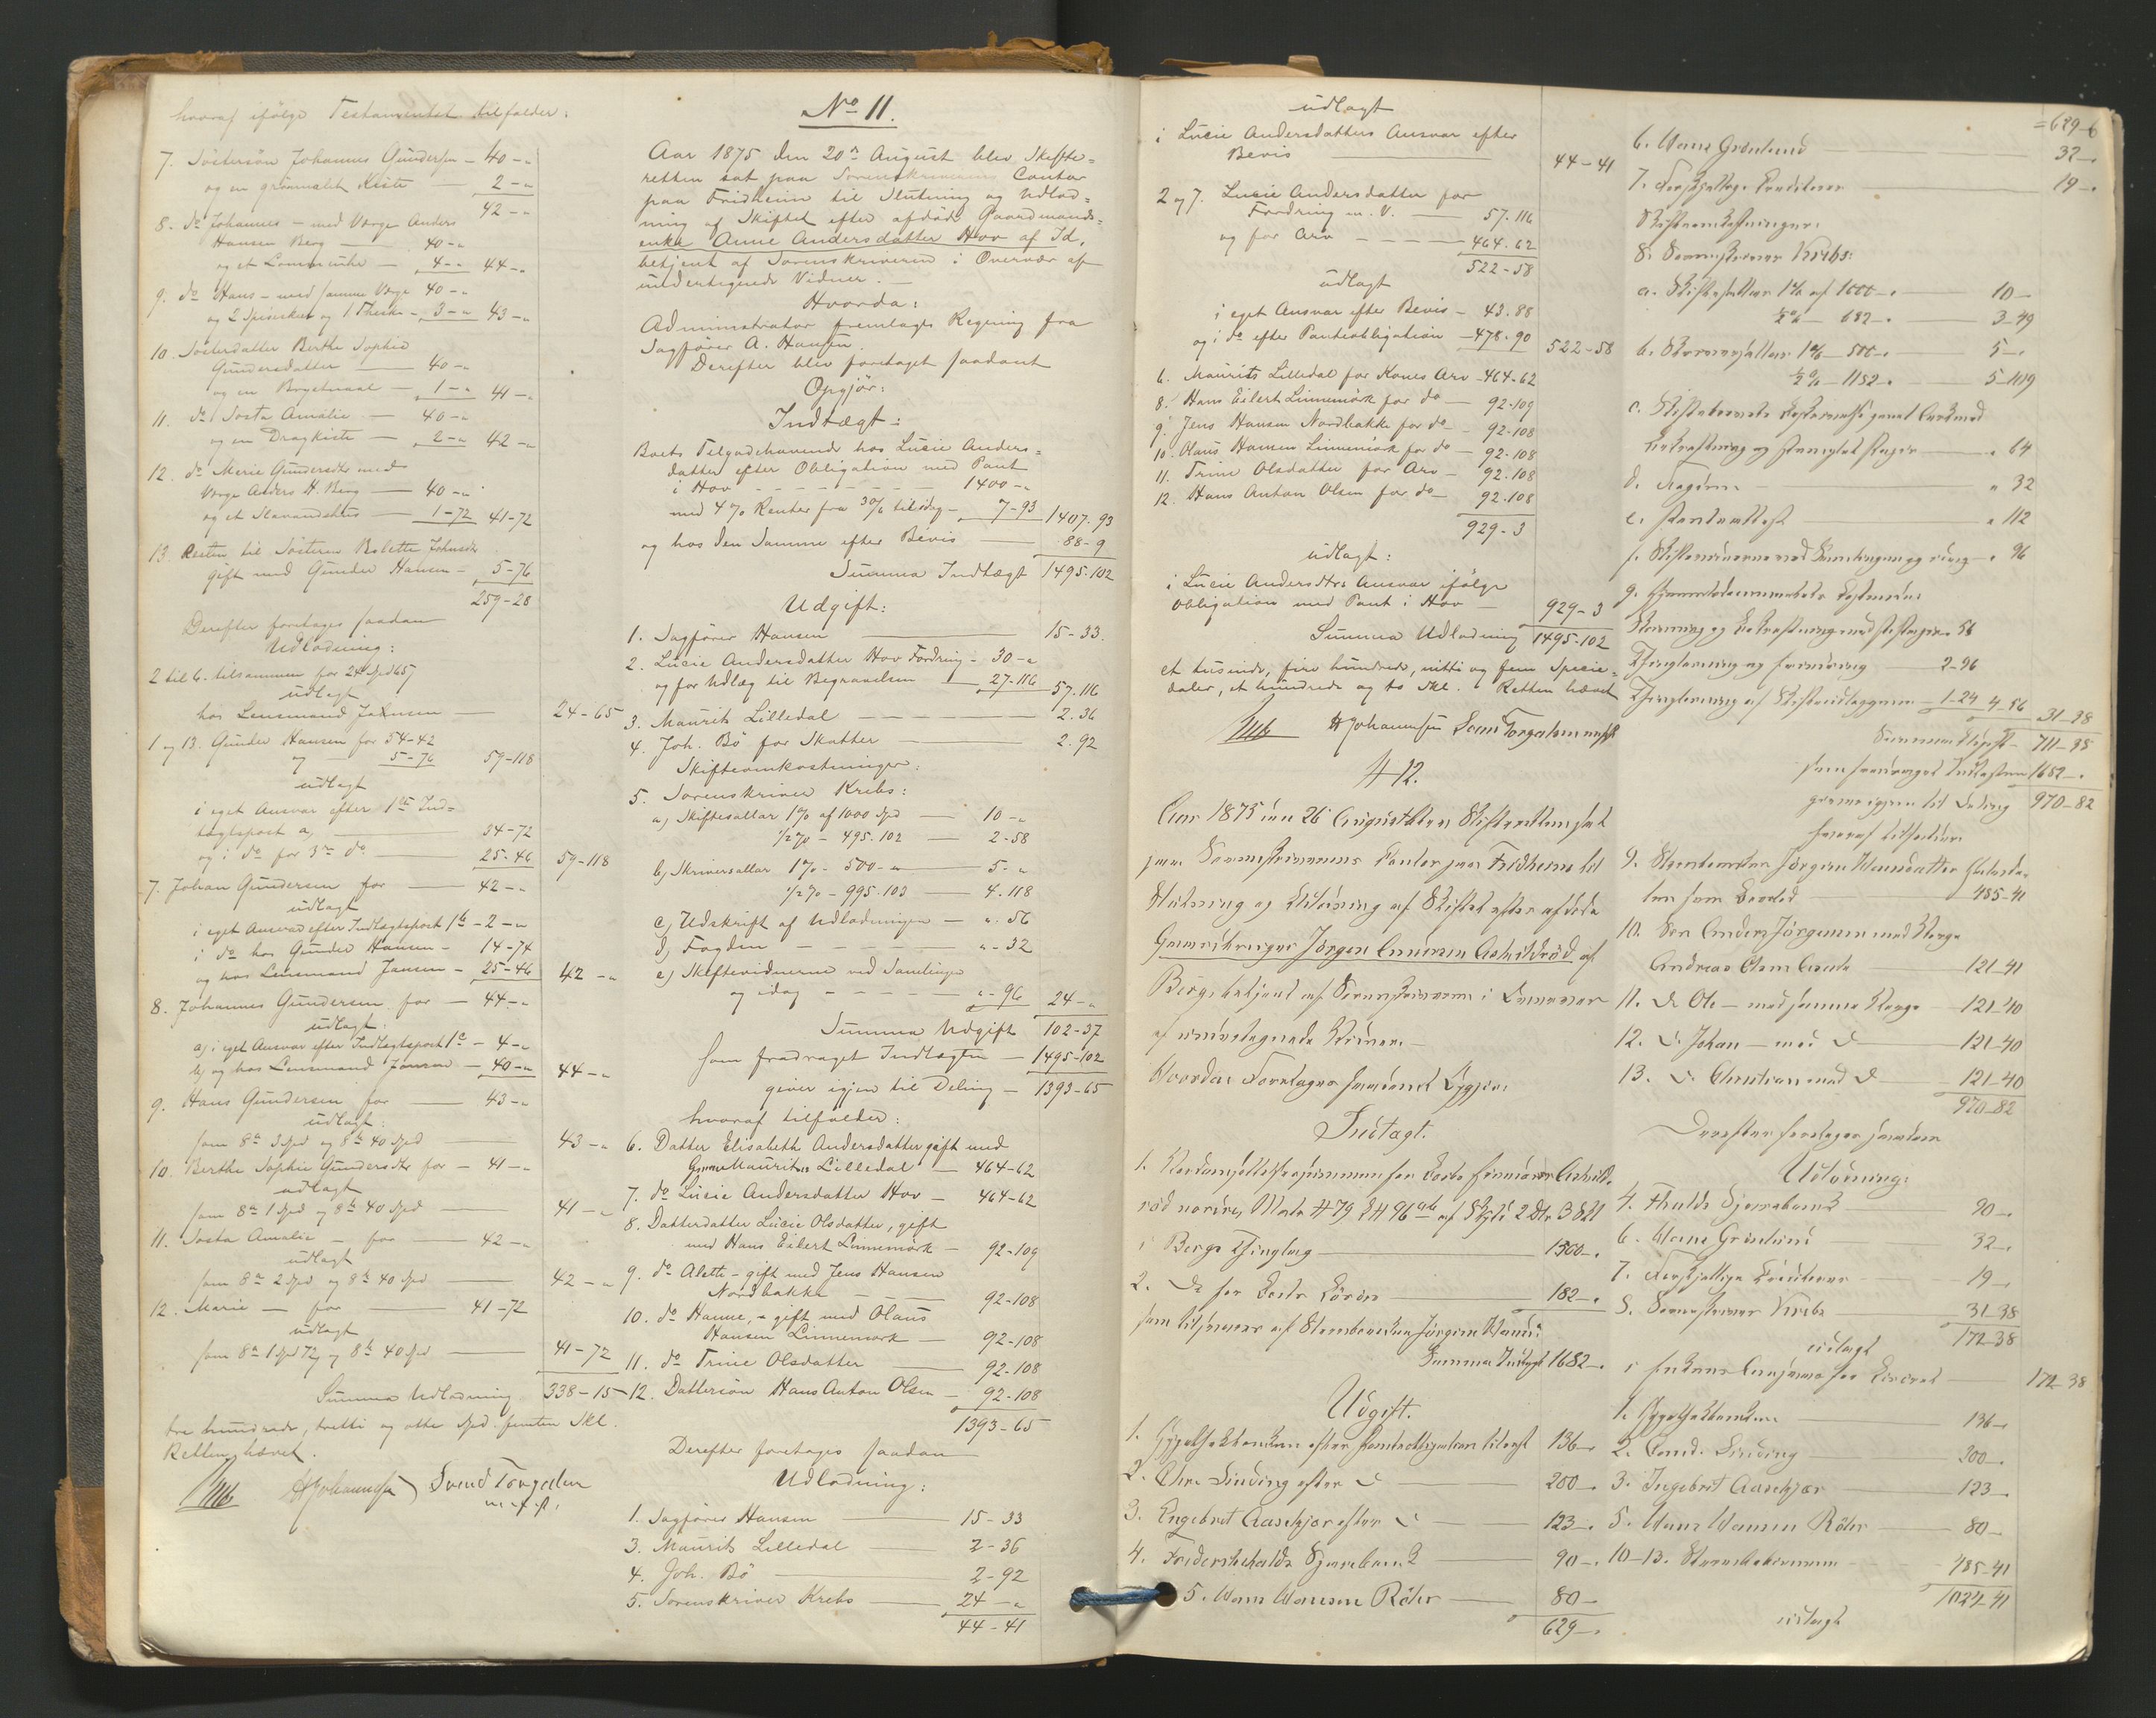 hvoraf ifølge Testamentet tilfalder:
7. Søstersøn Johannes Gundersen - 40 - "
og en grønmalet Kiste - 2 - "
42 - "
8. do Johannes - med Værge Anders
Hansen Berg - 40 - "
og et Lommeuhr - 4 - " 44 - "
9. do Hans - med samme Værge 40 - "
og 2 Spiseskeer og 1 Theske - 3 - " 43 - "
10. Søsterdatter Berthe Sophie
Gundersdatter 40 - "
og en - 1 - " 41 - "
11. do Josta Amalie - 40 - "
og en Dragkiste - 2 - " 42 - "
12. do Marie Gundersdtr med
Værge Anders H. Berg - 40 - "
og et - 1-72 41-72
13. Resten til Søsteren Bolette Johnsdtr
gift med Gunder Hansen - 5-76
259-28
Derefter foretages saadan
Udlodning:
2 til 6. tilsammen for 24 Spd 65
udlagt
hos Lensmand Jansen - 24-65
1 og 13. Gunder Hansen for 54-42
og 5-76 59-118
udlagt
i eget Ansvar efter 1ste Ind-
tægtspost a, 34-72
og i do for 3die do 25-46 59-118
7. Johan Gundersen for - 42 - "
udlagt
i eget Ansvar efter Indtægtspost 1b - 2 - "
i do hos Gunder Hansen - 14-74
og hos Lensmand Jansen - 25-46 42 - "
8. Johannes Gundersen for - 44 - "
udlagt:
a) i eget Ansvar efter Indtægtspost 1c - 4 - "
b) og hos Lensmand Jansen - 40 - " 44 - "
9. Hans Gundersen for - 43 - "
udlagt:
som 8a 3 Spd og 8b 40 Spd 43 - "
10. Berthe Sophie Gundersdtr for - 41 - "
udlagt
som 8a 1 Spd og 8b 40 Spd 41 - "
11. Josta Amalie - for - 42 - "
udlagt
som 8a 2 Spd og 8b 40 Spd 42 - "
12. Marie - for 41-72
udlagt
som 8a 1 Spd 72 og 8b 40 Spd 41-72
Summa Udlodning 338-15
tre hundrede, tretti og otte Spd. femten Skl.
Retten hævet.
Krebs HJohannesen Svend Torgalsen
m. f. p.
No 11.
Aar 1875 den 20de August blev Skifte-
retten sat paa Sorenskriverens Contor
paa Fridheim til Slutning og Udlod-
ning af Skiftet efter afdøde Gaardmands-
enke Anne Andersdatter Hov af Id,
betjent af Sorenskriveren i Overvær af
undertegnede Vidner.
Hvorda:
Administrator fremlagde Regning fra
Sagfører A. Hansen.
Derefter blev foretaget saadant
Opgjør:
Indtægt:
Boets Tilgodehavende hos Lucie Anders-
datter efter Obligation med Pant
i Hov 1400 - "
med 4% Renter fra 30/6 til idag - 7-93 1407.93
og hos den Samme efter Bevis 88-9
Summa Indtægt 1495.102
Udgift:
1. Sagfører Hansen 15-33.
2. Lucie Andersdatter Hov Fordring - 30 - "
og for Udlæg til Begravelsen 27-116 57.116
3. Maurits Lilledal 2.36
4. Joh. Bø for Skatter 2.92
Skifteomkostninger:
5. Sorenskriver Krebs:
a) Skiftesallar 1% af 1000 Spd 10 - "
1/2% - 495.102 2-58
b) Skriversallar 1% - 500 - " 5 - "
1/2% - 995.102 4.118
c) Udskrift af Udlodningen " . 56
d) Fogden " - 32
e) Skiftevidnerne ved Samlinger
og idag " - 96 24 - "
Summa Udgift 102-37
som fradraget Indtægten - 1495-102
giver igjen til Deling - 1393-65
hvoraf tilfalder:
6. Datter Elisabeth Andersdatter gift med
Maurits Lilledal - 464-62
7. do Lucie Andersdatter Hov - 464-62
8. Datterdatter Lucie Olsdatter, gift
med Hans Eilert Linnemørk - 92-109
9. do Alette - gift med Jens Hansen
Nordbakke 92-108
10. do Hanne, - gift med Olaus
Hansen Linnemørk 92-108
11. do Trine Olsdatter 92-108
12. Dattersøn Hans Anton Olsen - 92-108
1393-65
Derefter foretages saadan
Udlodning:
1. Sagfører Hansen 15-33
3. Maurits Lilledal 2-36
4. Joh. Bø 2-92
5. Sorenskriver Krebs 24 - "
44-41
udlagt
i Lucie Andersdatters Ansvar efter
Bevis 44-41
2 og 7. Lucie Andersdatter for
Fordring m. V. 57.116
og for Arv 464.62
522-58
udlagt
i eget Ansvar efter Bevis - 43.88
og i do efter Pantobligation - 478.90 522-58
6. Maurits Lilledal for Kones Arv - 464-62
8. Hans Eilert Linnemørk for do - 92-109
9. Jens Hansen Nordbakke for do - 92-108
10. Olaus Hansen Linnemørk for do - 92-108
11. Trine Olsdatter for Arv - 92-108
12. Hans Anton Olsen for do - 92.108
929-3
udlagt:
i Lucie Andersdtrs Ansvar ifølge
Obligation med Pant i Hov - 929-3
Summa Udlodning 1495-102
et tusinde, fire hundrede, nitti og fem Specie-
daler, et hundrede og to Skl. Retten hævet
Krebs HJohannesen Svend Torgalsen m f p
№ 12.
Aar 1875 den 26 August blev Skifteretten sat
paa Sorenskriverens Contor paa Fridheim til
Slutning og Udlodning af Skiftet efter afdøde
Gaardbruger Jørgen Asmildrød af
Berg, betjent af Sorenskriveren i Overvær
af undertegnede Vidner.
Hvorda: Foretages saadant Opgjør:
Indtægt.
1. for Boets Eiendom Asmild-
rød nordre, Matr № 79 L № 96ab af Skyld 2 Dlr 3 Skl
i Bergs Thinglag 1500 - "
2. Do for Boets Løsøre 182 - "
som tilhører af Jørgine Hansd.
Summa Indtægt 1682 - "
Udgift.
1. Hypothekbanken efter Pantobligation tilgode 136 - "
2. Linding efter do 200 - "
3. Engebret Aasekjær efter do 123 - "
4. Fredrikshalds Sparebank 90 - "
5. Hans Hansen Röder 80 -
629 - "
= 629-6
6. Hans Grønlund 32 - "
7. Forskjellige Creditorer 19 - "
Skifteomkostninger:
8. Sorenskriver Krebs:
a. Skiftesallar 1% af 1000 - " 10 -
1/2% - 682 - " 3-49
b. Skriversallar 1% - 500 - " 5 - "
1/2% - 1182 - " 5-109
c.
" 64
d. Fogden " 32
e. Panteattest " 112
f. Skiftevidnerne ved Samlingen og idag " 96
g.
56
Thinglæsning og 2-96
Thinglæsning af Skifteudlæggene - 1-24 4-56 31-38
Summa Udgift - 711-38
som fradraget Indtægten 1682 - "
giver igjen til Deling 970-82
hvoraf tilfalder:
9. Jørgine Hansdatter
485-41
10. Søn Anders Jørgensen med Værge
Andreas Olsen 121-41
11. do Ole - med samme Værge 121-40
12. do Johan - med do 121-40
13. do Christian med do 121-40
970-82
Derefter foretages saadan
Udlodning:
4. Fhalds Sparebank 90 - "
6. Hans Grønlund 32 - "
7. Forskjellige Creditorer 19 - "
8. Sorenskriver Krebs 31-38
172-38
udlagt
172-38
1. Hypothekbanken 136 - "
2. Cand. Linding 200 - "
3. Ingebret Aasekjær 123 - "
5. Hans Hansen Röder 80 -
10-13. 485-41
1024-41
udlagt